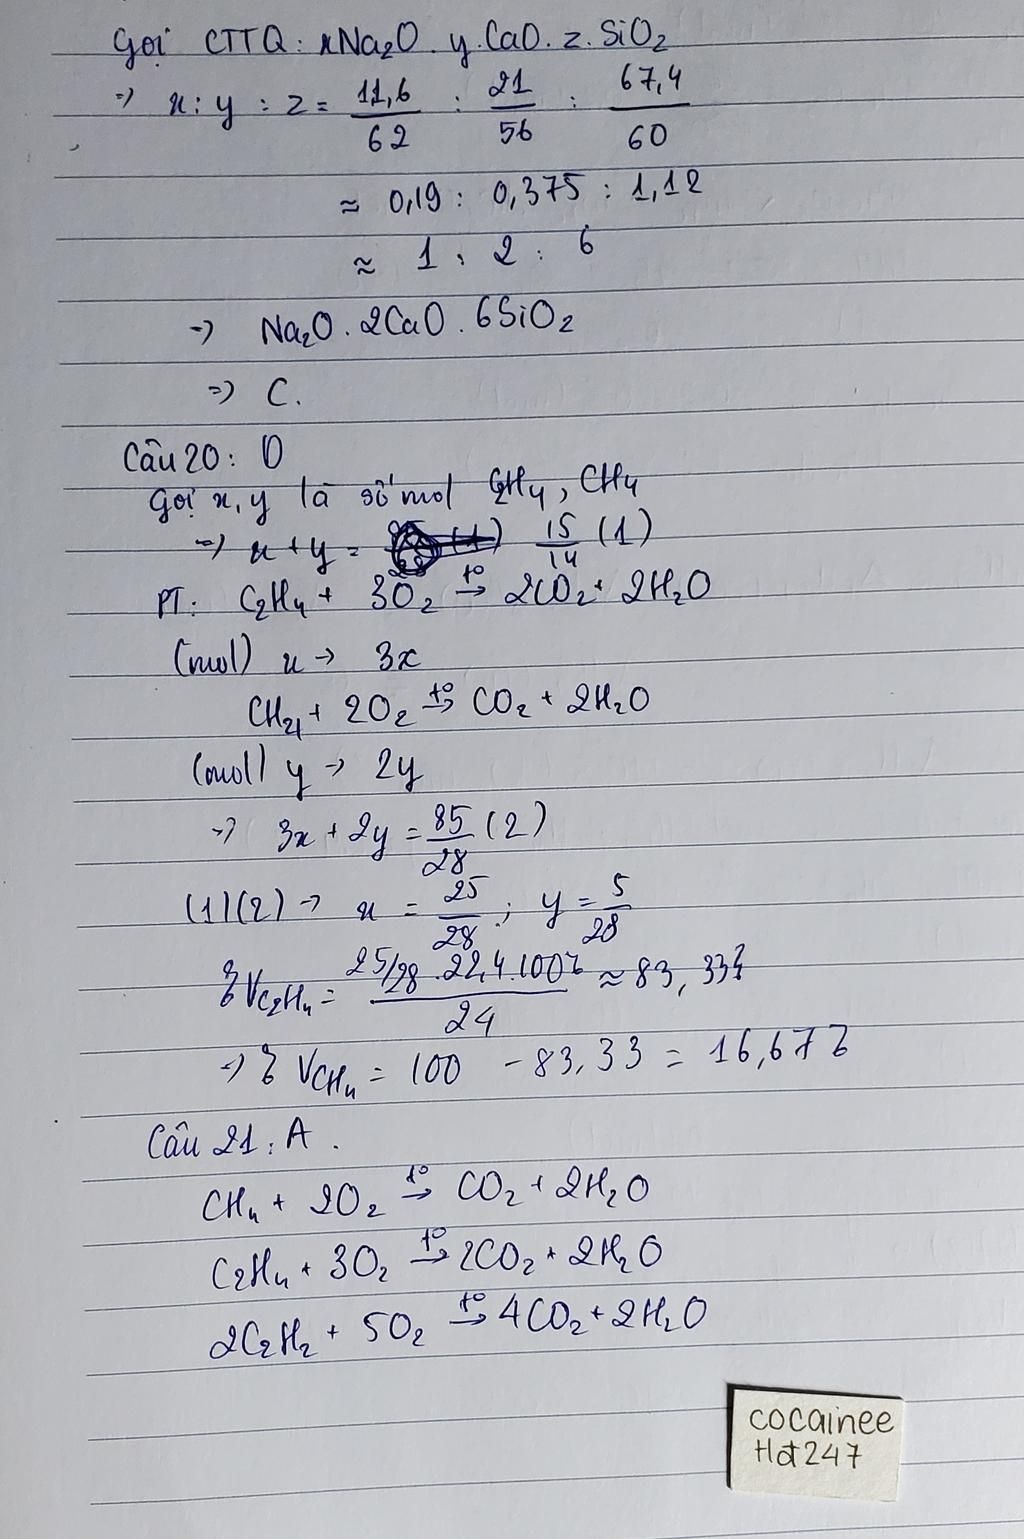 Gọi CTTQ: xNa₂O. y.CaO. z. SiO₂
=> x: y : z = 11,6/62 : 21/56 : 67,4/60
≈ 0,19 : 0,375 : 1,12
≈ 1 : 2 : 6
=> Na₂O . 2CaO . 6SiO₂
=> C.
Câu 20: D
Gọi x, y là số mol C₂H₄, CH₄
=> x + y = 15/14 (1)
PT: C₂H₄ + 3O₂ t°→ 2CO₂ + 2H₂O
(mol) x → 3x
CH₄ + 2O₂ t°→ CO₂ + 2H₂O
(mol) y → 2y
=> 3x + 2y = 85/28 (2)
(1)(2) => x = 25/28 ; y = 5/28
%V_C₂H₄ = 25/28 . 22,4 . 100% / 24 ≈ 83,33%
=> % V_CH₄ = 100 - 83,33 = 16,67%
Câu 21: A.
CH₄ + 2O₂ t°→ CO₂ + 2H₂O
C₂H₄ + 3O₂ t°→ 2CO₂ + 2H₂O
2C₂H₂ + 5O₂ t°→ 4CO₂ + 2H₂O
cocainee
Hđ247